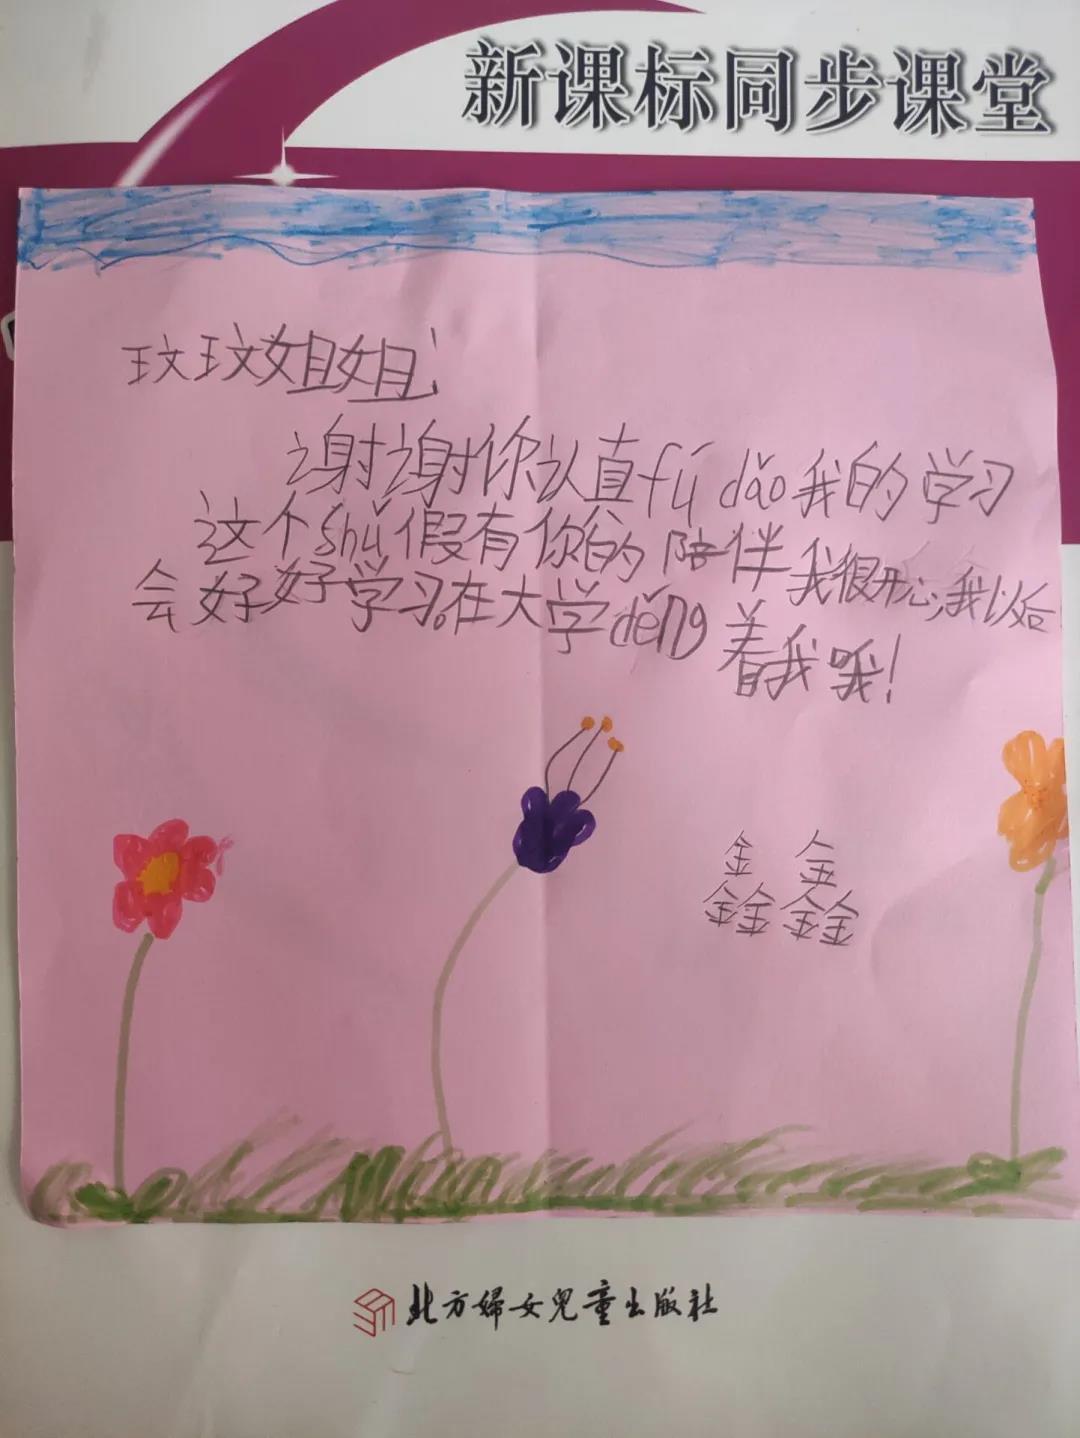 新课标同步课堂
玟玟姐姐:
谢谢你认真fú dǎo我的学习
这个shǔ假有你的陪伴我很开心,我以后
会好好学习。在大学děng着我哦!
鑫鑫
北方婦女兒童出版社